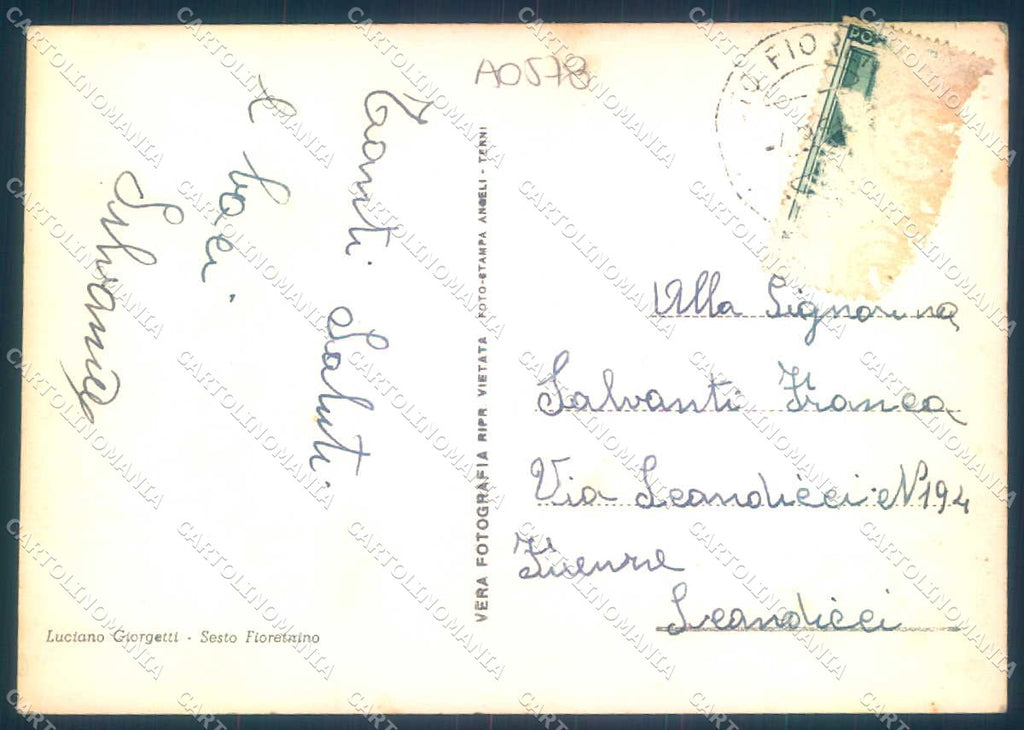 A0573
Tanti Saluti.
e baci.
Silvana
VERA FOTOGRAFIA RIPR VIETATA FOTO-STAMPA ANGELI - TERNI
Luciano Giorgetti - Sesto Fiorentino
FIOR
PO
Alla Signorina
Salvanti Franca
Via Scandicci N194
Firenze
Scandicci
CARTOLINOMANIA